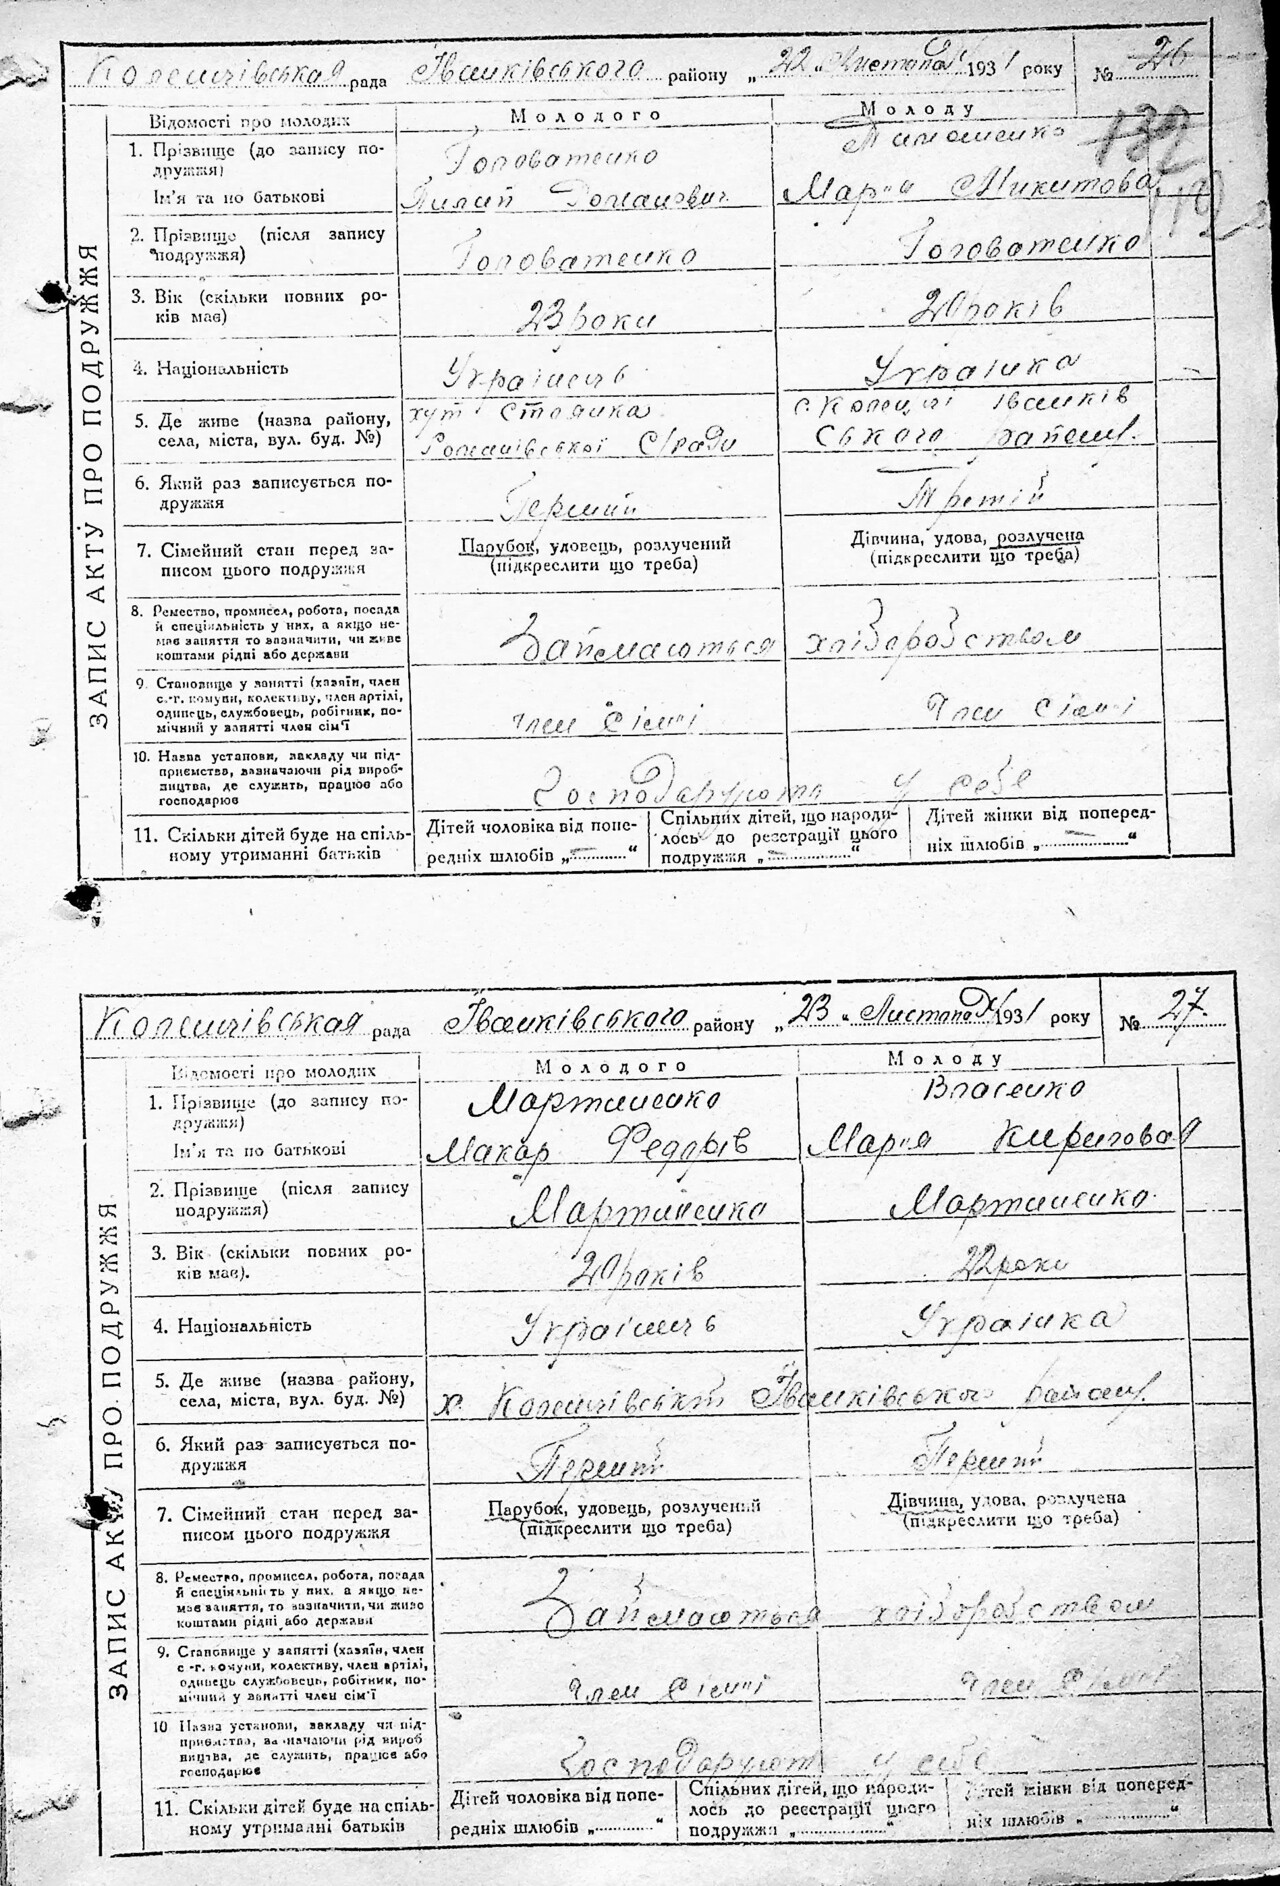 Коленцівськая рада Іванківського району „22„ Листопада 1931 року № 26
132
112
ЗАПИС АКТУ ПРО ПОДРУЖЖЯ
Відомості про молодих Молодого Молоду
1. Прізвище (до запису по-
дружжя) Головатенко Тимошенко
Ім'я та по батькові Пилип Романович Мария Микитова
2. Прізвище (після запису
подружжя) Головатенко Головатенко
3. Вік (скільки повних ро-
ків має) 23 роки 20 років
4. Національність Українець Українка
5. Де живе (назва району,
села, міста, вул. буд. №) хут Стоянка
Романівської С/ради
с. Коленці Іванків
ського району.
6. Який раз записується по-
дружжя Перший Третій
7. Сімейний стан перед за-
писом цього подружжя
Парубок, удовець, розлучений
(підкреслити що треба)
Дівчина, удова, розлучена
(підкреслити що треба)
8. Ремество, промисел, робота, посада
й спеціяльність у них, а якщо не-
має заняття то зазначити, чи живе
коштами рідні або держави
Займаються хліборобством
9. Становище у занятті (хазяїн, член
с.-г. комуни, колективу, член артілі,
одинець, службовець, робітник, по-
мічний у занятті член сім'ї
член сімні член сімні
10. Назва установи, закладу чи під-
приємства, зазначаючи рід вироб-
ництва, де служить, працює або
господарює
Господарують у себе
11. Скільки дітей буде на спіль-
ному утриманні батьків
Дітей чоловіка від попе-
редніх шлюбів „—“
Спільних дітей, що народи-
лось до реєстрації цього
подружжя „—“
Дітей жінки від поперед-
ніх шлюбів „—“
Коленцівськая рада Іванківського району „23„ Листопада 1931 року № 27.
ЗАПИС АКТУ ПРО ПОДРУЖЖЯ
Відомості про молодих Молодого Молоду
1. Прізвище (до запису по-
дружжя) Мартиненко Власенко
Ім'я та по батькові Макар Федорів Мария Кириловая
2. Прізвище (після запису
подружжя) Мартиненко Мартиненко
3. Вік (скільки повних ро-
ків має). 20 років 22 роки
4. Національність Українець Українка
5. Де живе (назва району,
села, міста, вул. буд. №) х. Коленцівській Іванківського району.
6. Який раз записується по-
дружжя Перший Перший
7. Сімейний стан перед за-
писом цього подружжя
Парубок, удовець, розлучений
(підкреслити що треба)
Дівчина, удова, розлучена
(підкреслити що треба)
8. Ремество, промисел, робота, посада
й спеціяльність у них, а якщо не-
має заняття, то зазначити, чи живе
коштами рідні або держави
Займаються хліборобством
9. Становище у занятті (хазяїн, член
с.-г. комуни, колективу, член артілі,
одинець службовець, робітник, по-
мічний у занятті член сім'ї
член сімні член сімні
10 Назва установи, закладу чи під-
приємства, зазначаючи рід вироб
ництва, де служить, працює або
господарює
Господарують у себе
11. Скільки дітей буде на спіль-
ному утриманні батьків
Дітей чоловіка від попе-
редніх шлюбів „............“
Спільних дітей, що народи-
лось до реєстрації цього
подружжя „............“
Дітей жінки від поперед-
ніх шлюбів „............“